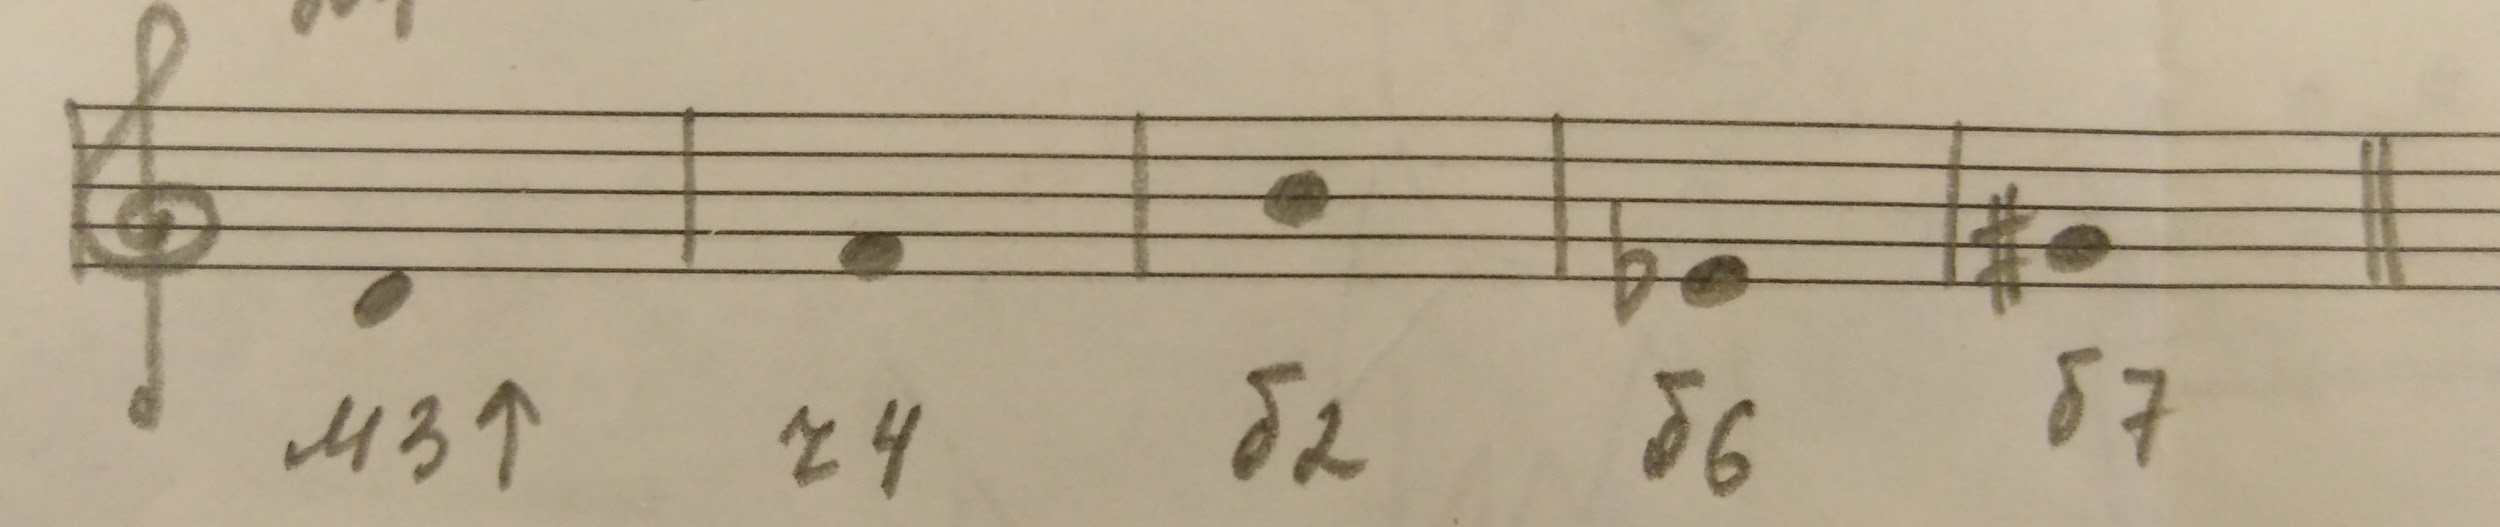 м3↑ ч4 б2 б6 б7